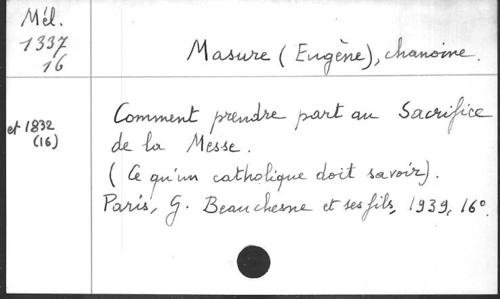 Mél.
1337
16
Masure (Eugène), chanoine.
et 1832
(16)
Comment prendre part au Sacrifice
de la Messe.
(Ce qu'un catholique doit savoir).
Paris, G. Beauchesne et ses fils, 1939, 16°